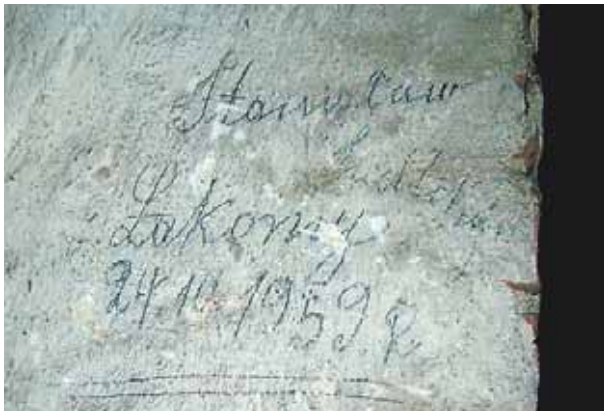 Stanisław
Łakomy
24.10.1959.R